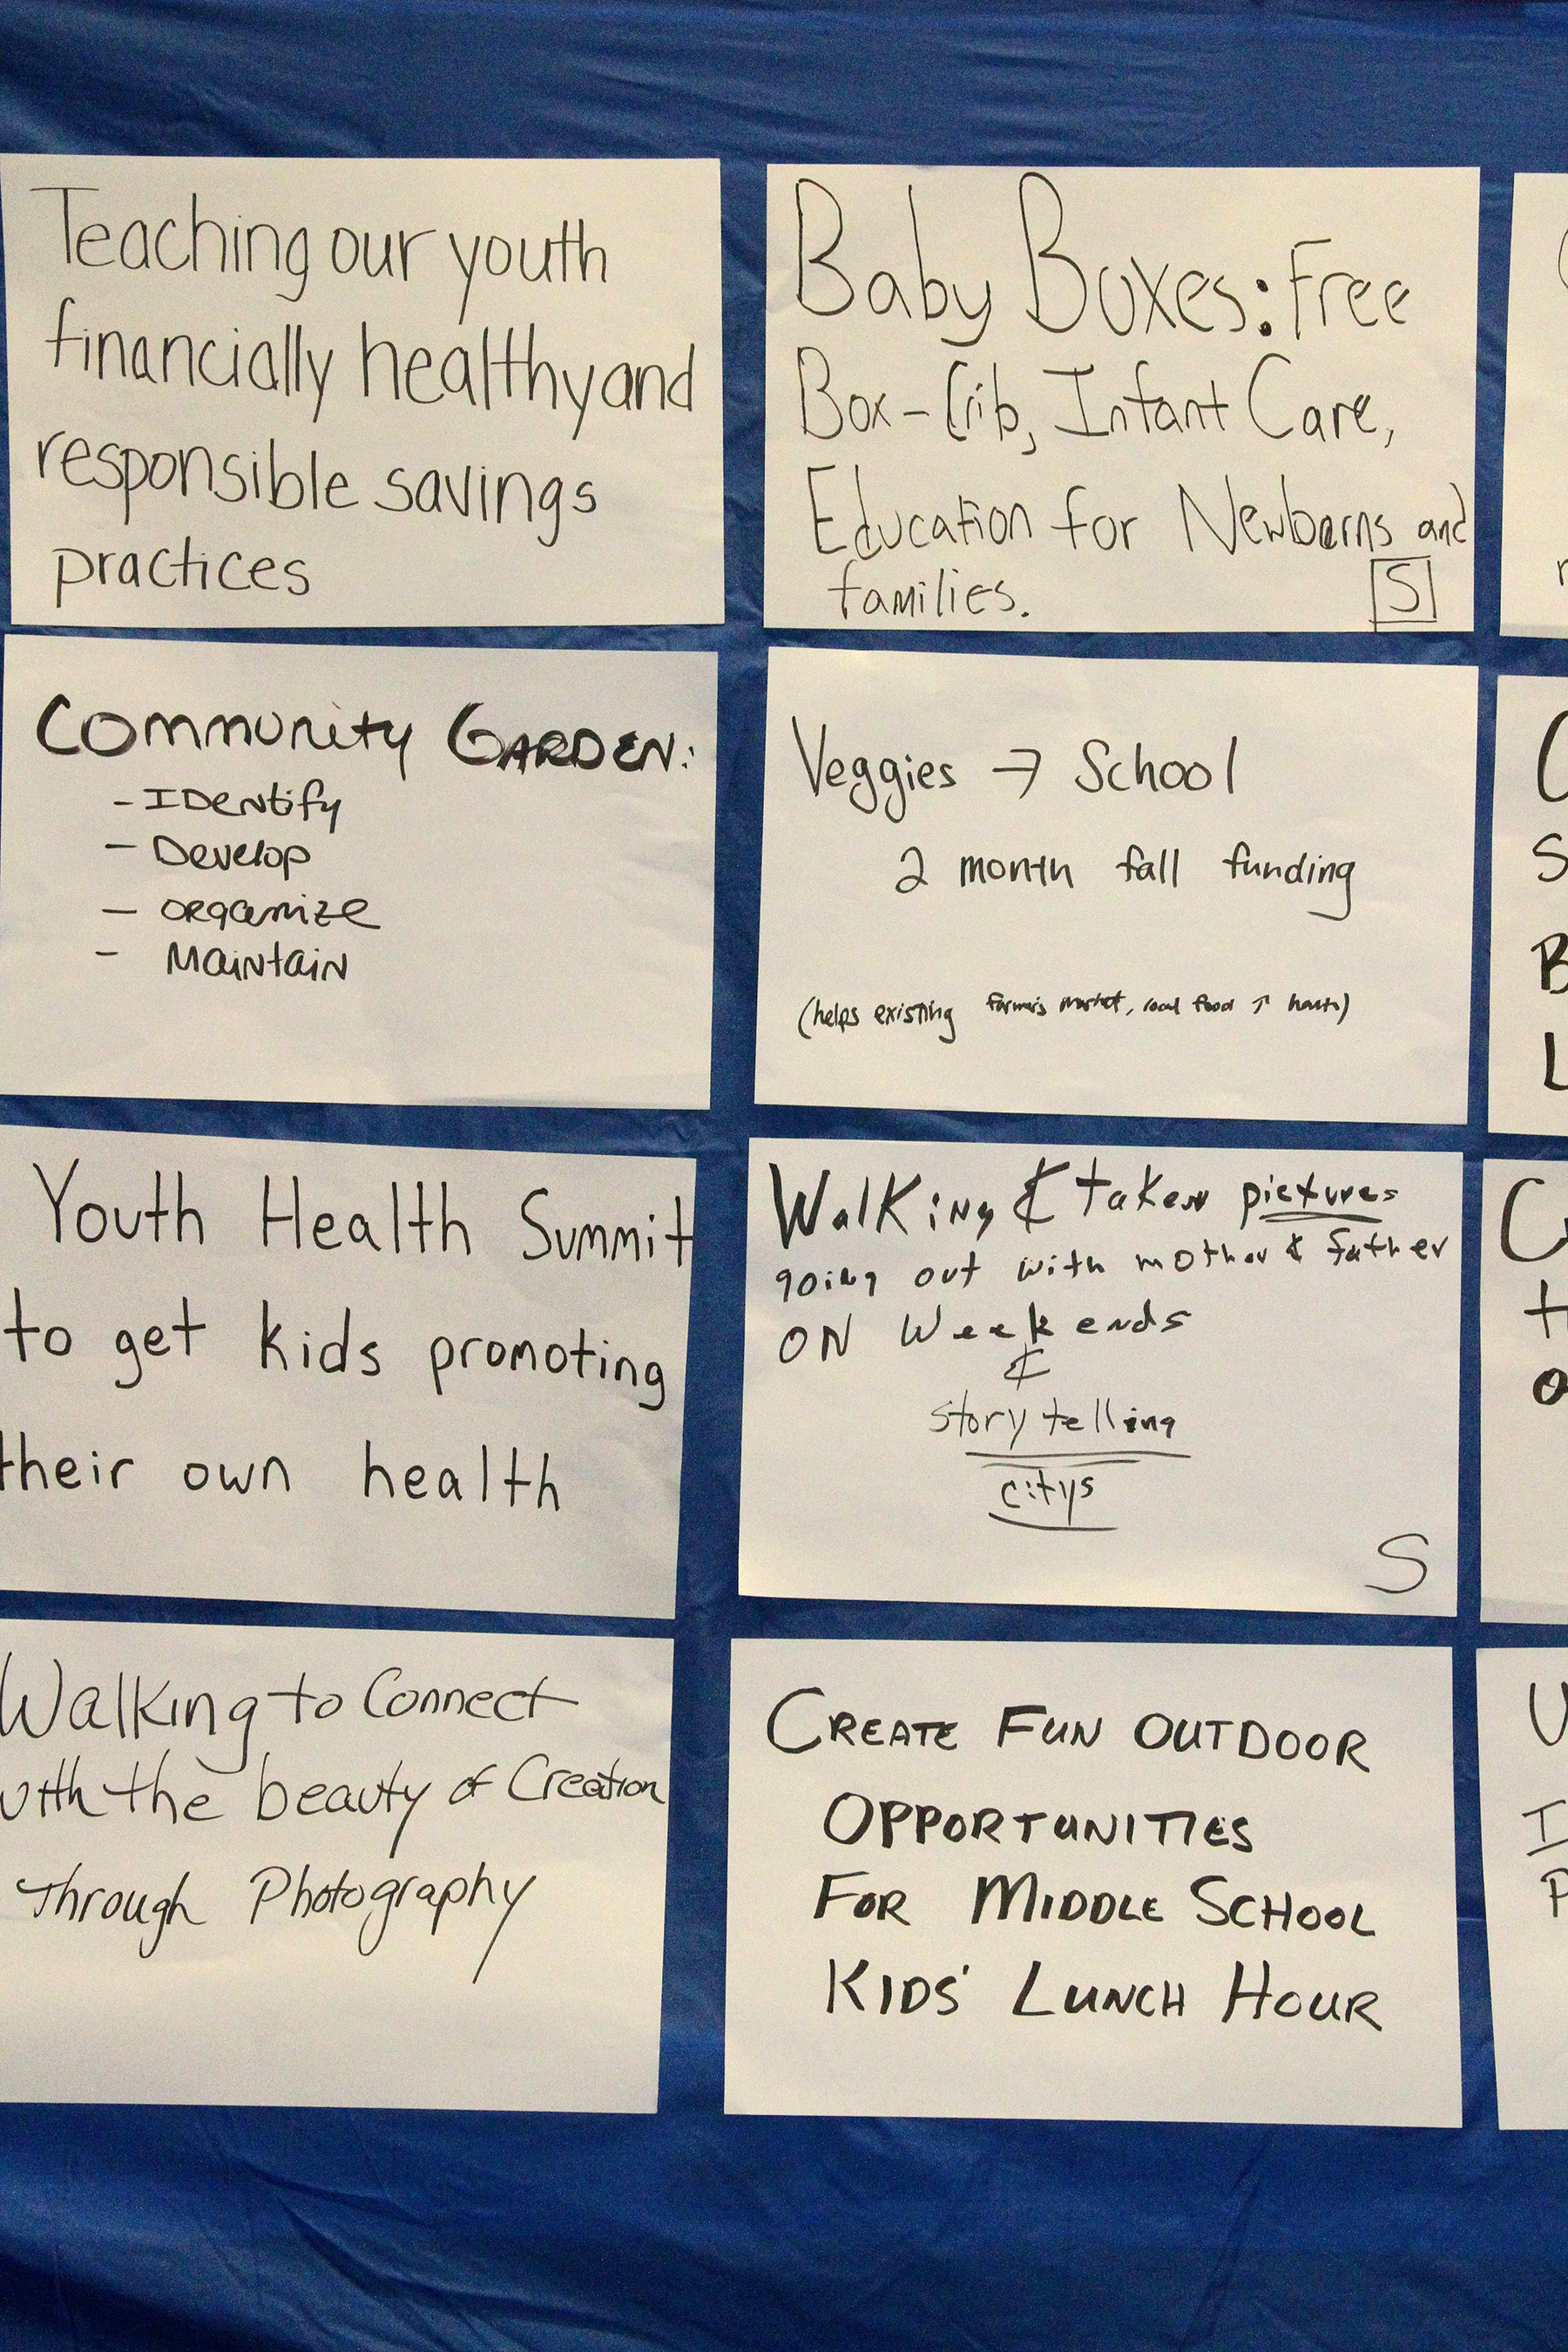 Teaching our youth
financially healthy and
responsible savings
practices
Baby Boxes: Free
Box-Crib, Infant Care,
Education for Newborns and
families.
S
Community Garden:
- Identify
- Develop
- organize
- Maintain
Veggies → School
2 month fall funding
(helps existing farmer's market, local food ↑ health)
Youth Health Summit
to get kids promoting
their own health
Walking & taken pictures
going out with mother & father
ON Weekends
&
story telling
citys
S
Walking to Connect
with the beauty of Creation
Through Photography
CREATE FUN OUTDOOR
OPPORTUNITIES
FOR MIDDLE SCHOOL
KIDS' LUNCH HOUR